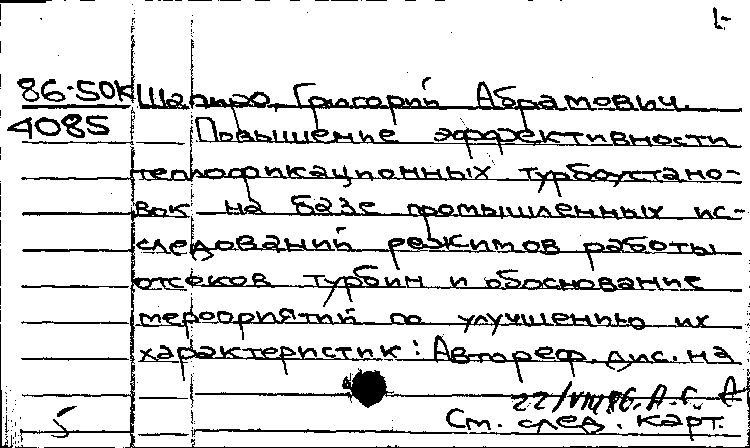 1-
86-50К Шапиро, Григорий Абрамович.
4085 Повышение эффективности
теплофикационных турбоустано-
вок на базе промышленных ис-
следований режимов работы
отсеков турбин и обоснование
мероприятий по улучшению их
характеристик: Автореф. дис. на
22/VIII 86.
5 См. след. карт.